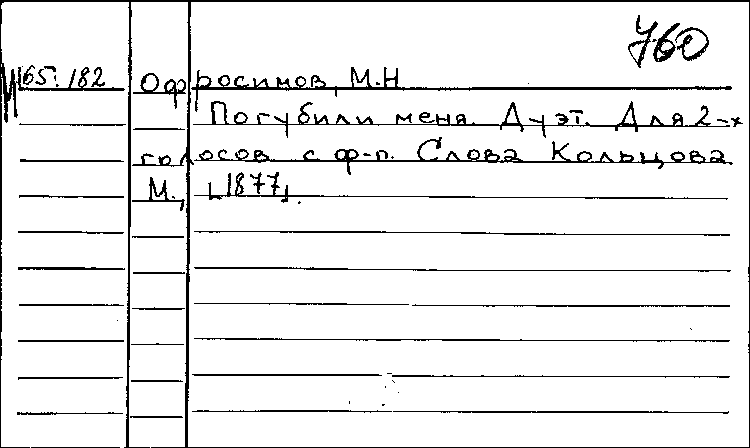 760
М 165.182 Офросимов, М.Н
Погубили меня. Дуэт. Для 2-х
голосов с ф-п. Слова Кольцова.
М., [1877].